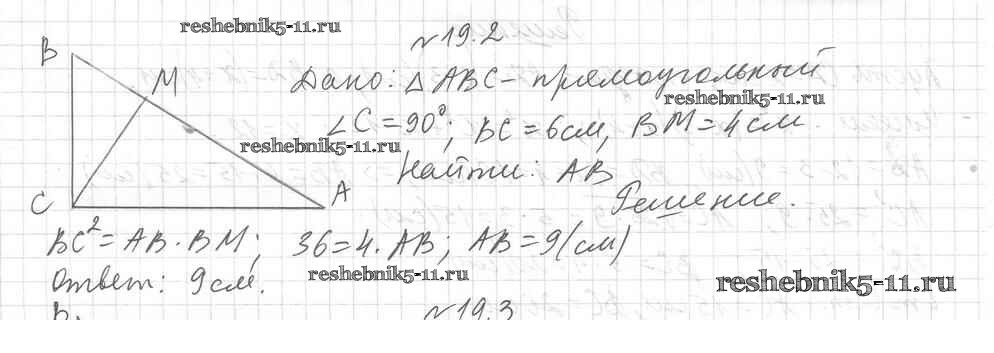 reshebnik5-11.ru
№19.2
B
M
Дано: △ABC - прямоугольный
reshebnik5-11.ru
∠C = 90°; BC = 6см, BM = 4см.
reshebnik5-11.ru
Найти: AB
C
A
Решение.
BC² = AB · BM; 36 = 4 · AB; AB = 9 (см)
Ответ: 9см.
reshebnik5-11.ru
reshebnik5-11.ru
№19.3